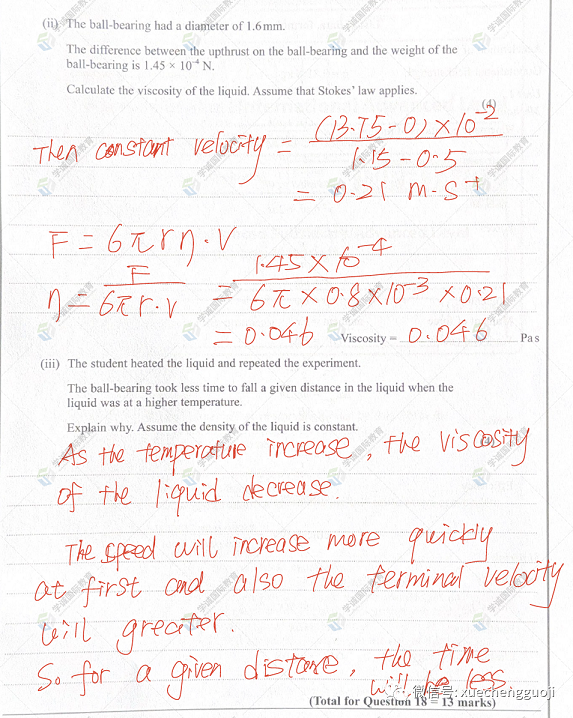 (ii) The ball-bearing had a diameter of 1.6 mm.
The difference between the upthrust on the ball-bearing and the weight of the
ball-bearing is 1.45 × 10⁻⁴ N.
Calculate the viscosity of the liquid. Assume that Stokes' law applies.
(4)
Then constant velocity = (13.75-0)×10⁻² / 1.15-0.5
= 0.21 m·s⁻¹
F = 6πrη·v
η = F / 6πr·v = 1.45×10⁻⁴ / 6π×0.8×10⁻³×0.21
= 0.046 Viscosity = 0.046 Pa s
(iii) The student heated the liquid and repeated the experiment.
The ball-bearing took less time to fall a given distance in the liquid when the
liquid was at a higher temperature.
Explain why. Assume the density of the liquid is constant.
As the temperature increase, the viscosity
of the liquid decrease.
The speed will increase more quickly
at first and also the terminal velocity
will greater.
So for a given distance, the time
will be less
微信号: xuechengguoji
(Total for Question 18 = 13 marks)
学诚国际教育